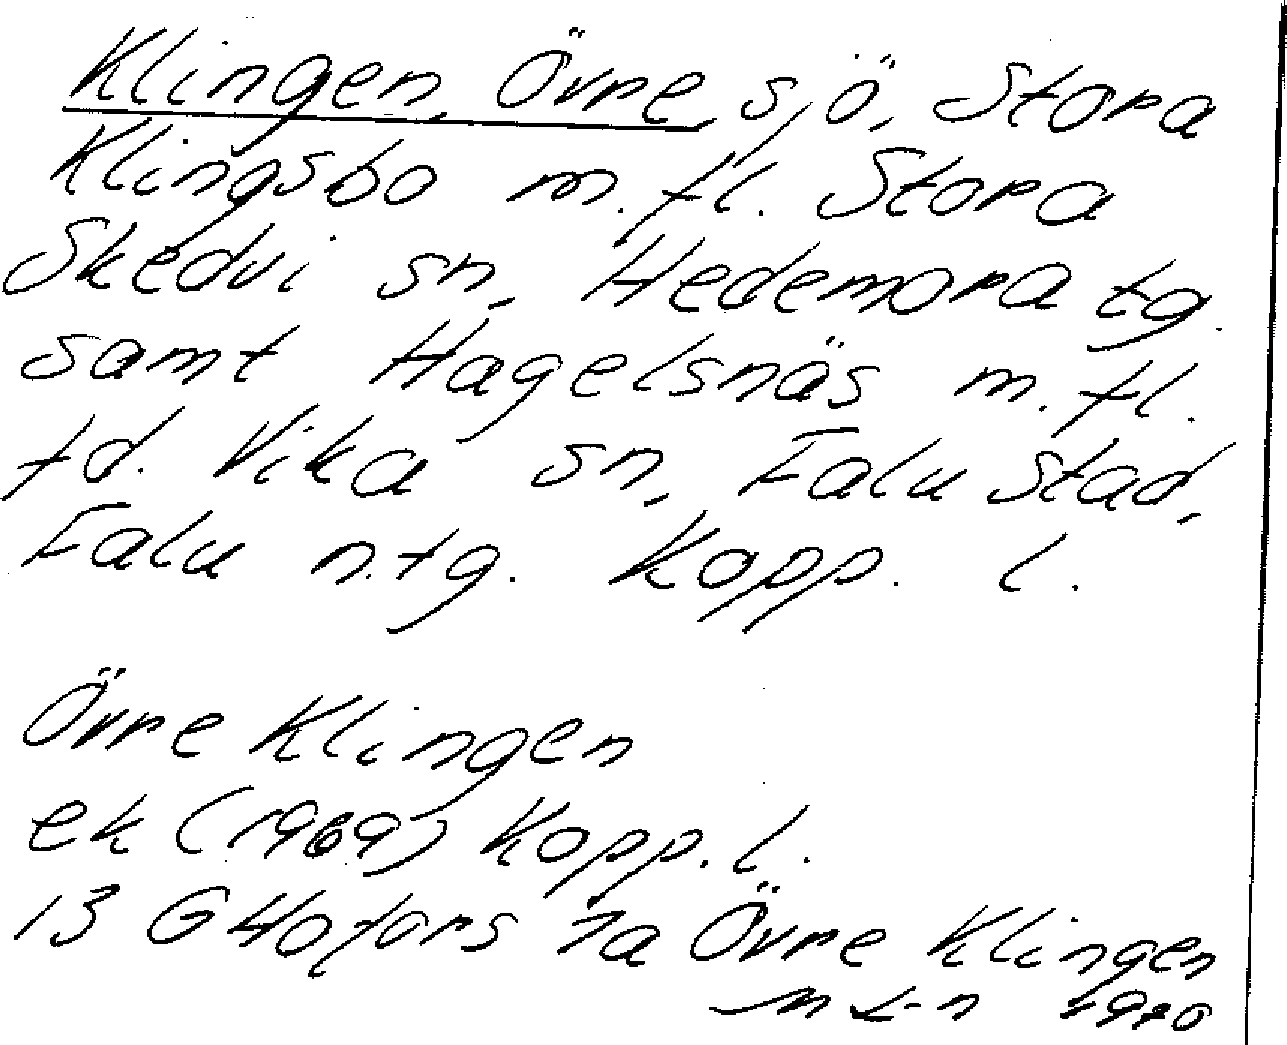 Klingen, Övre, sjö, Stora
Klingsbo m.fl. Stora
Skedvi sn, Hedemora tg
samt Hagelsnäs m.fl.
fd. Vika sn, Falu stad,
Falu n.tg. Kopp. l.
Övre Klingen
ek (1969) Kopp. l.
13 G Hofors 7a Övre Klingen